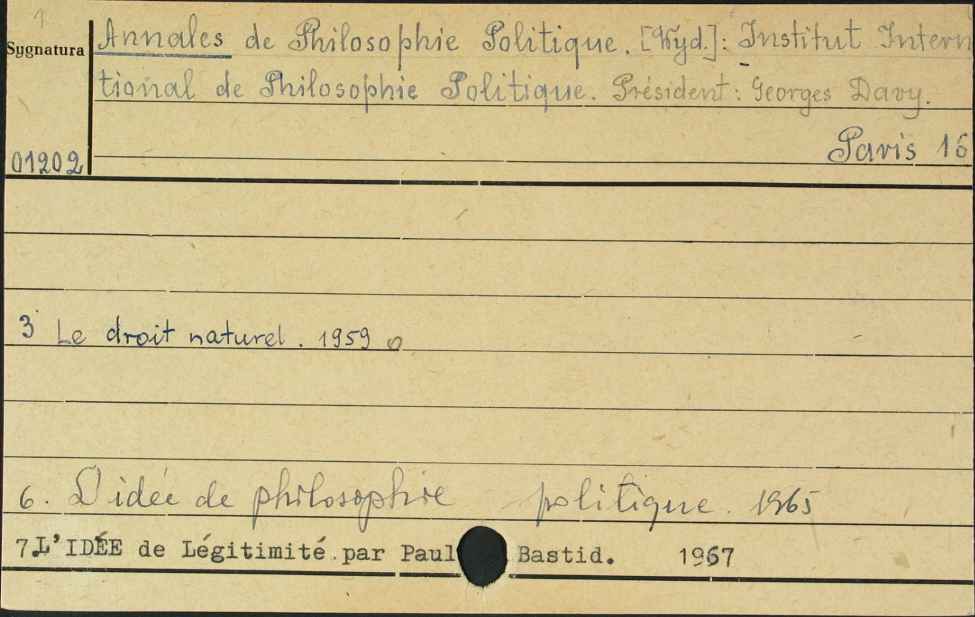 Sygnatura
Annales de Philosophie Politique. [Wyd.]: Institut Intern
tional de Philosophie Politique. Président: Georges Davy.
01202
Paris 16
3 Le droit naturel. 1959
6. L'idée de philosophie politique. 1965
7.L'IDÉE de Légitimité par Paul Bastid. 1967